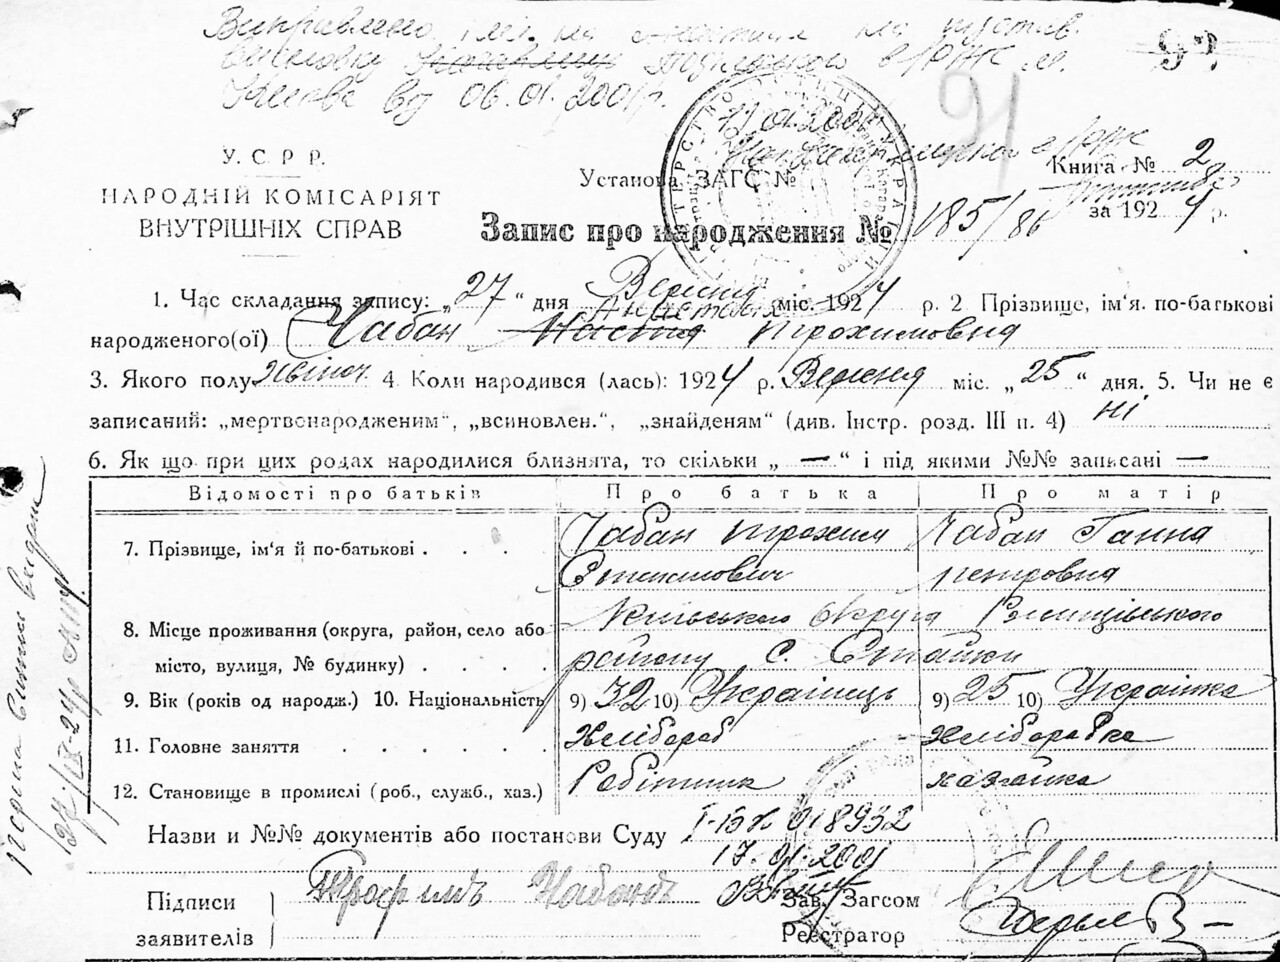 Виправлено ім'я на
висновку в/РЖ м.
Києва від 06.01.2001р.
93
91
17.01.2001
У. С. Р. Р.
НАРОДНІЙ КОМІСАРІЯТ
ВНУТРІШНІХ СПРАВ
Установа ЗАГС №
Книга № 2
за 1924 р.
Запис про народження № 185/86
1. Час складання запису: „27“ дня Вересня міс. 1924 р. 2. Прізвище, ім'я. по-батькові
Анастасія
народженого(ої) Чабан Настя Трохимовна
3. Якого полу жіноч. 4. Коли народився (лась): 1924 р. Вересня міс. „25“ дня. 5. Чи не є
записаний: „мертвонародженим“, „всиновлен.“, „знайденям“ (див. Інстр. розд. III п. 4) ні
6. Як що при цих родах народилися близнята, то скільки „ — “ і під якими №№ записані —
Відомості про батьків Про батька Про матір
7. Прізвище, ім'я й по-батькові . . . Чабан Трохим Чабан Ганна
Петровна
8. Місце проживання (округа, район, село або Київського Округа Ржищівського
місто, вулиця, № будинку) . . . . району с. Стайки
9. Вік (років од народж.) 10. Національність 9) 32 10) Українець 9) 25 10) Українка
11. Головне заняття . . . . . . Хлібороб Хліборобка
12. Становище в промислі (роб., служб., хаз.) Робітник хазяйка
Назви и №№ документів або постанови Суду І-БК 018932
17.01.2001
Підписи Трофимъ Чабанъ Зав. Загсом
заявителів Реєстратор